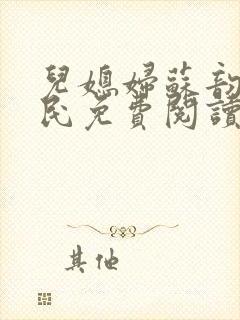 兒媳婦蘇韵
民免費閱讀
其他